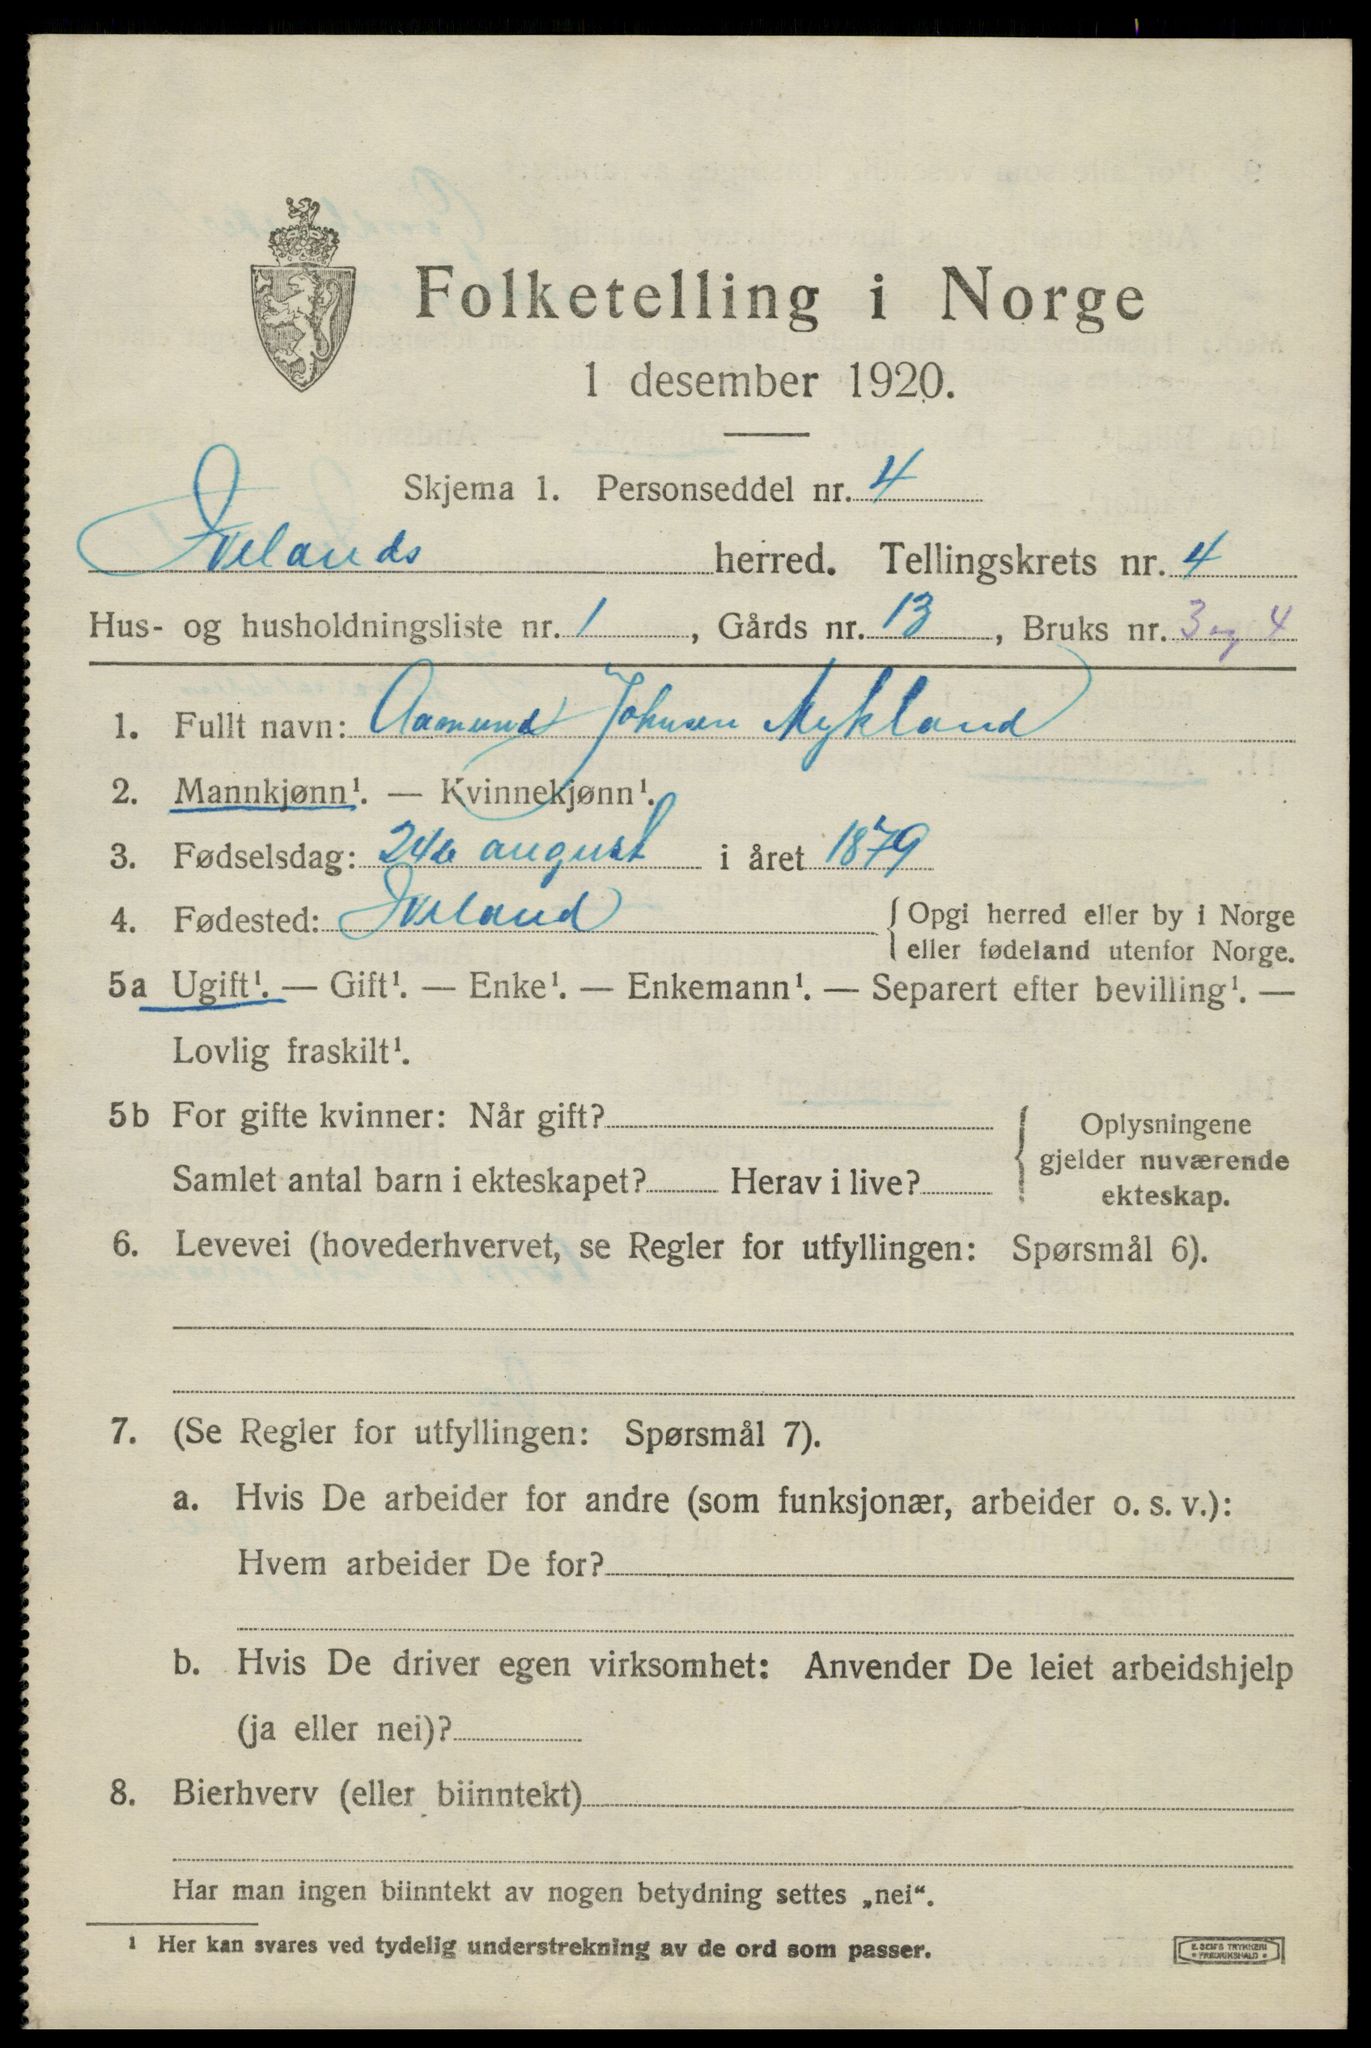 Folketelling i Norge
1 desember 1920.
Skjema 1. Personseddel nr. 4
Ivelands herred. Tellingskrets nr. 4
Hus- og husholdningsliste nr. 1, Gårds nr. 13, Bruks nr. 3 og 4
1. Fullt navn: Aamund Johnsen Mykland
2. Mannkjønn¹. — Kvinnekjønn¹.
3. Fødselsdag: 24de august i året 1879
4. Fødested: Iveland { Opgi herred eller by i Norge
eller fødeland utenfor Norge.
5a Ugift¹. — Gift¹. — Enke¹. — Enkemann¹. — Separert efter bevilling¹. —
Lovlig fraskilt¹.
5b For gifte kvinner: Når gift?
Samlet antal barn i ekteskapet? Herav i live?
Oplysningene
gjelder nuværende
ekteskap.
6. Levevei (hovederhvervet, se Regler for utfyllingen: Spørsmål 6).
7. (Se Regler for utfyllingen: Spørsmål 7).
a. Hvis De arbeider for andre (som funksjonær, arbeider o. s. v.):
Hvem arbeider De for?
b. Hvis De driver egen virksomhet: Anvender De leiet arbeidshjelp
(ja eller nei)?
8. Bierhverv (eller biinntekt)
Har man ingen biinntekt av nogen betydning settes „nei“.
¹ Her kan svares ved tydelig understrekning av de ord som passer.
E. SEM'S TRYKKERI
* FREDRIKSHALD *